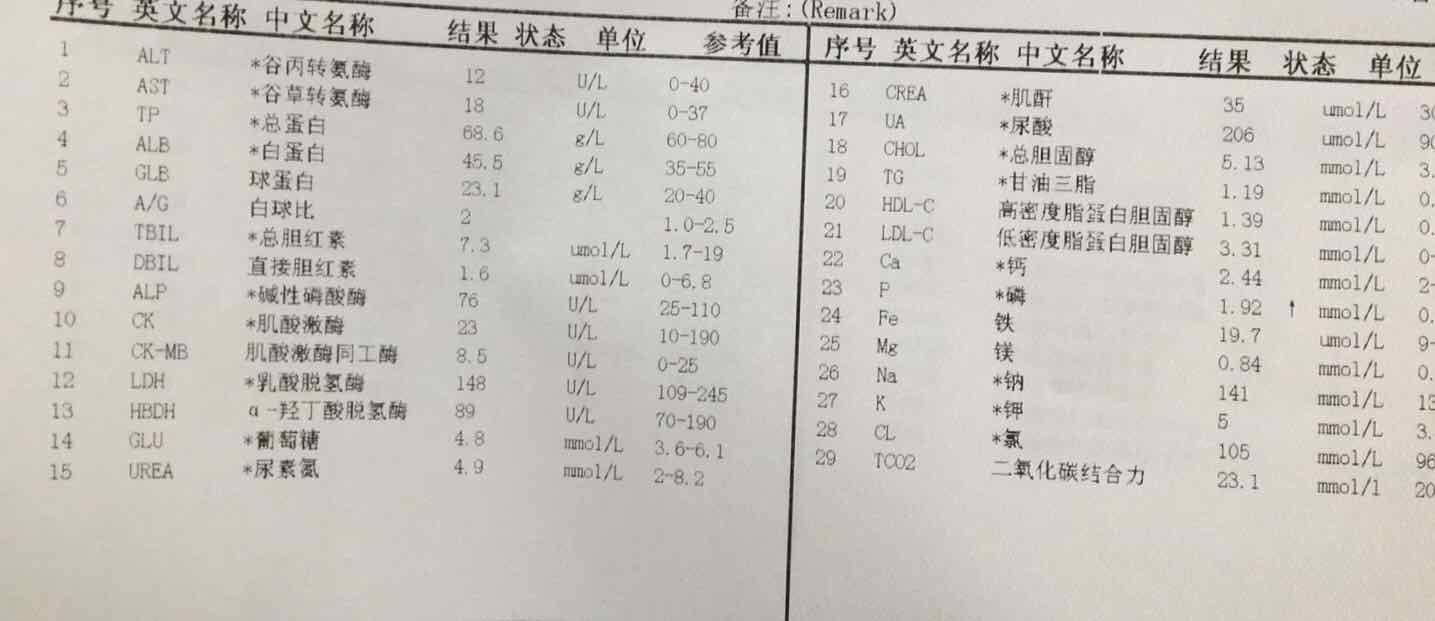 备注:(Remark)
序号 英文名称 中文名称 结果 状态 单位 参考值
1 ALT *谷丙转氨酶 12 U/L 0-40
2 AST *谷草转氨酶 18 U/L 0-37
3 TP *总蛋白 68.6 g/L 60-80
4 ALB *白蛋白 45.5 g/L 35-55
5 GLB 球蛋白 23.1 g/L 20-40
6 A/G 白球比 2 1.0-2.5
7 TBIL *总胆红素 7.3 umol/L 1.7-19
8 DBIL 直接胆红素 1.6 umol/L 0-6.8
9 ALP *碱性磷酸酶 76 U/L 25-110
10 CK *肌酸激酶 23 U/L 10-190
11 CK-MB 肌酸激酶同工酶 8.5 U/L 0-25
12 LDH *乳酸脱氢酶 148 U/L 109-245
13 HBDH α-羟丁酸脱氢酶 89 U/L 70-190
14 GLU *葡萄糖 4.8 mmol/L 3.6-6.1
15 UREA *尿素氮 4.9 mmol/L 2-8.2
序号 英文名称 中文名称 结果 状态 单位
16 CREA *肌酐 35 umol/L 30
17 UA *尿酸 206 umol/L 90
18 CHOL *总胆固醇 5.13 mmol/L 3.
19 TG *甘油三脂 1.19 mmol/L 0.
20 HDL-C 高密度脂蛋白胆固醇 1.39 mmol/L 0.
21 LDL-C 低密度脂蛋白胆固醇 3.31 mmol/L 0-
22 Ca *钙 2.44 mmol/L 2-
23 P *磷 1.92 ↑ mmol/L 0.
24 Fe 铁 19.7 umol/L 9-
25 Mg 镁 0.84 mmol/L 0.
26 Na *钠 141 mmol/L 13
27 K *钾 5 mmol/L 3.
28 CL *氯 105 mmol/L 96
29 TCO2 二氧化碳结合力 23.1 mmol/l 20